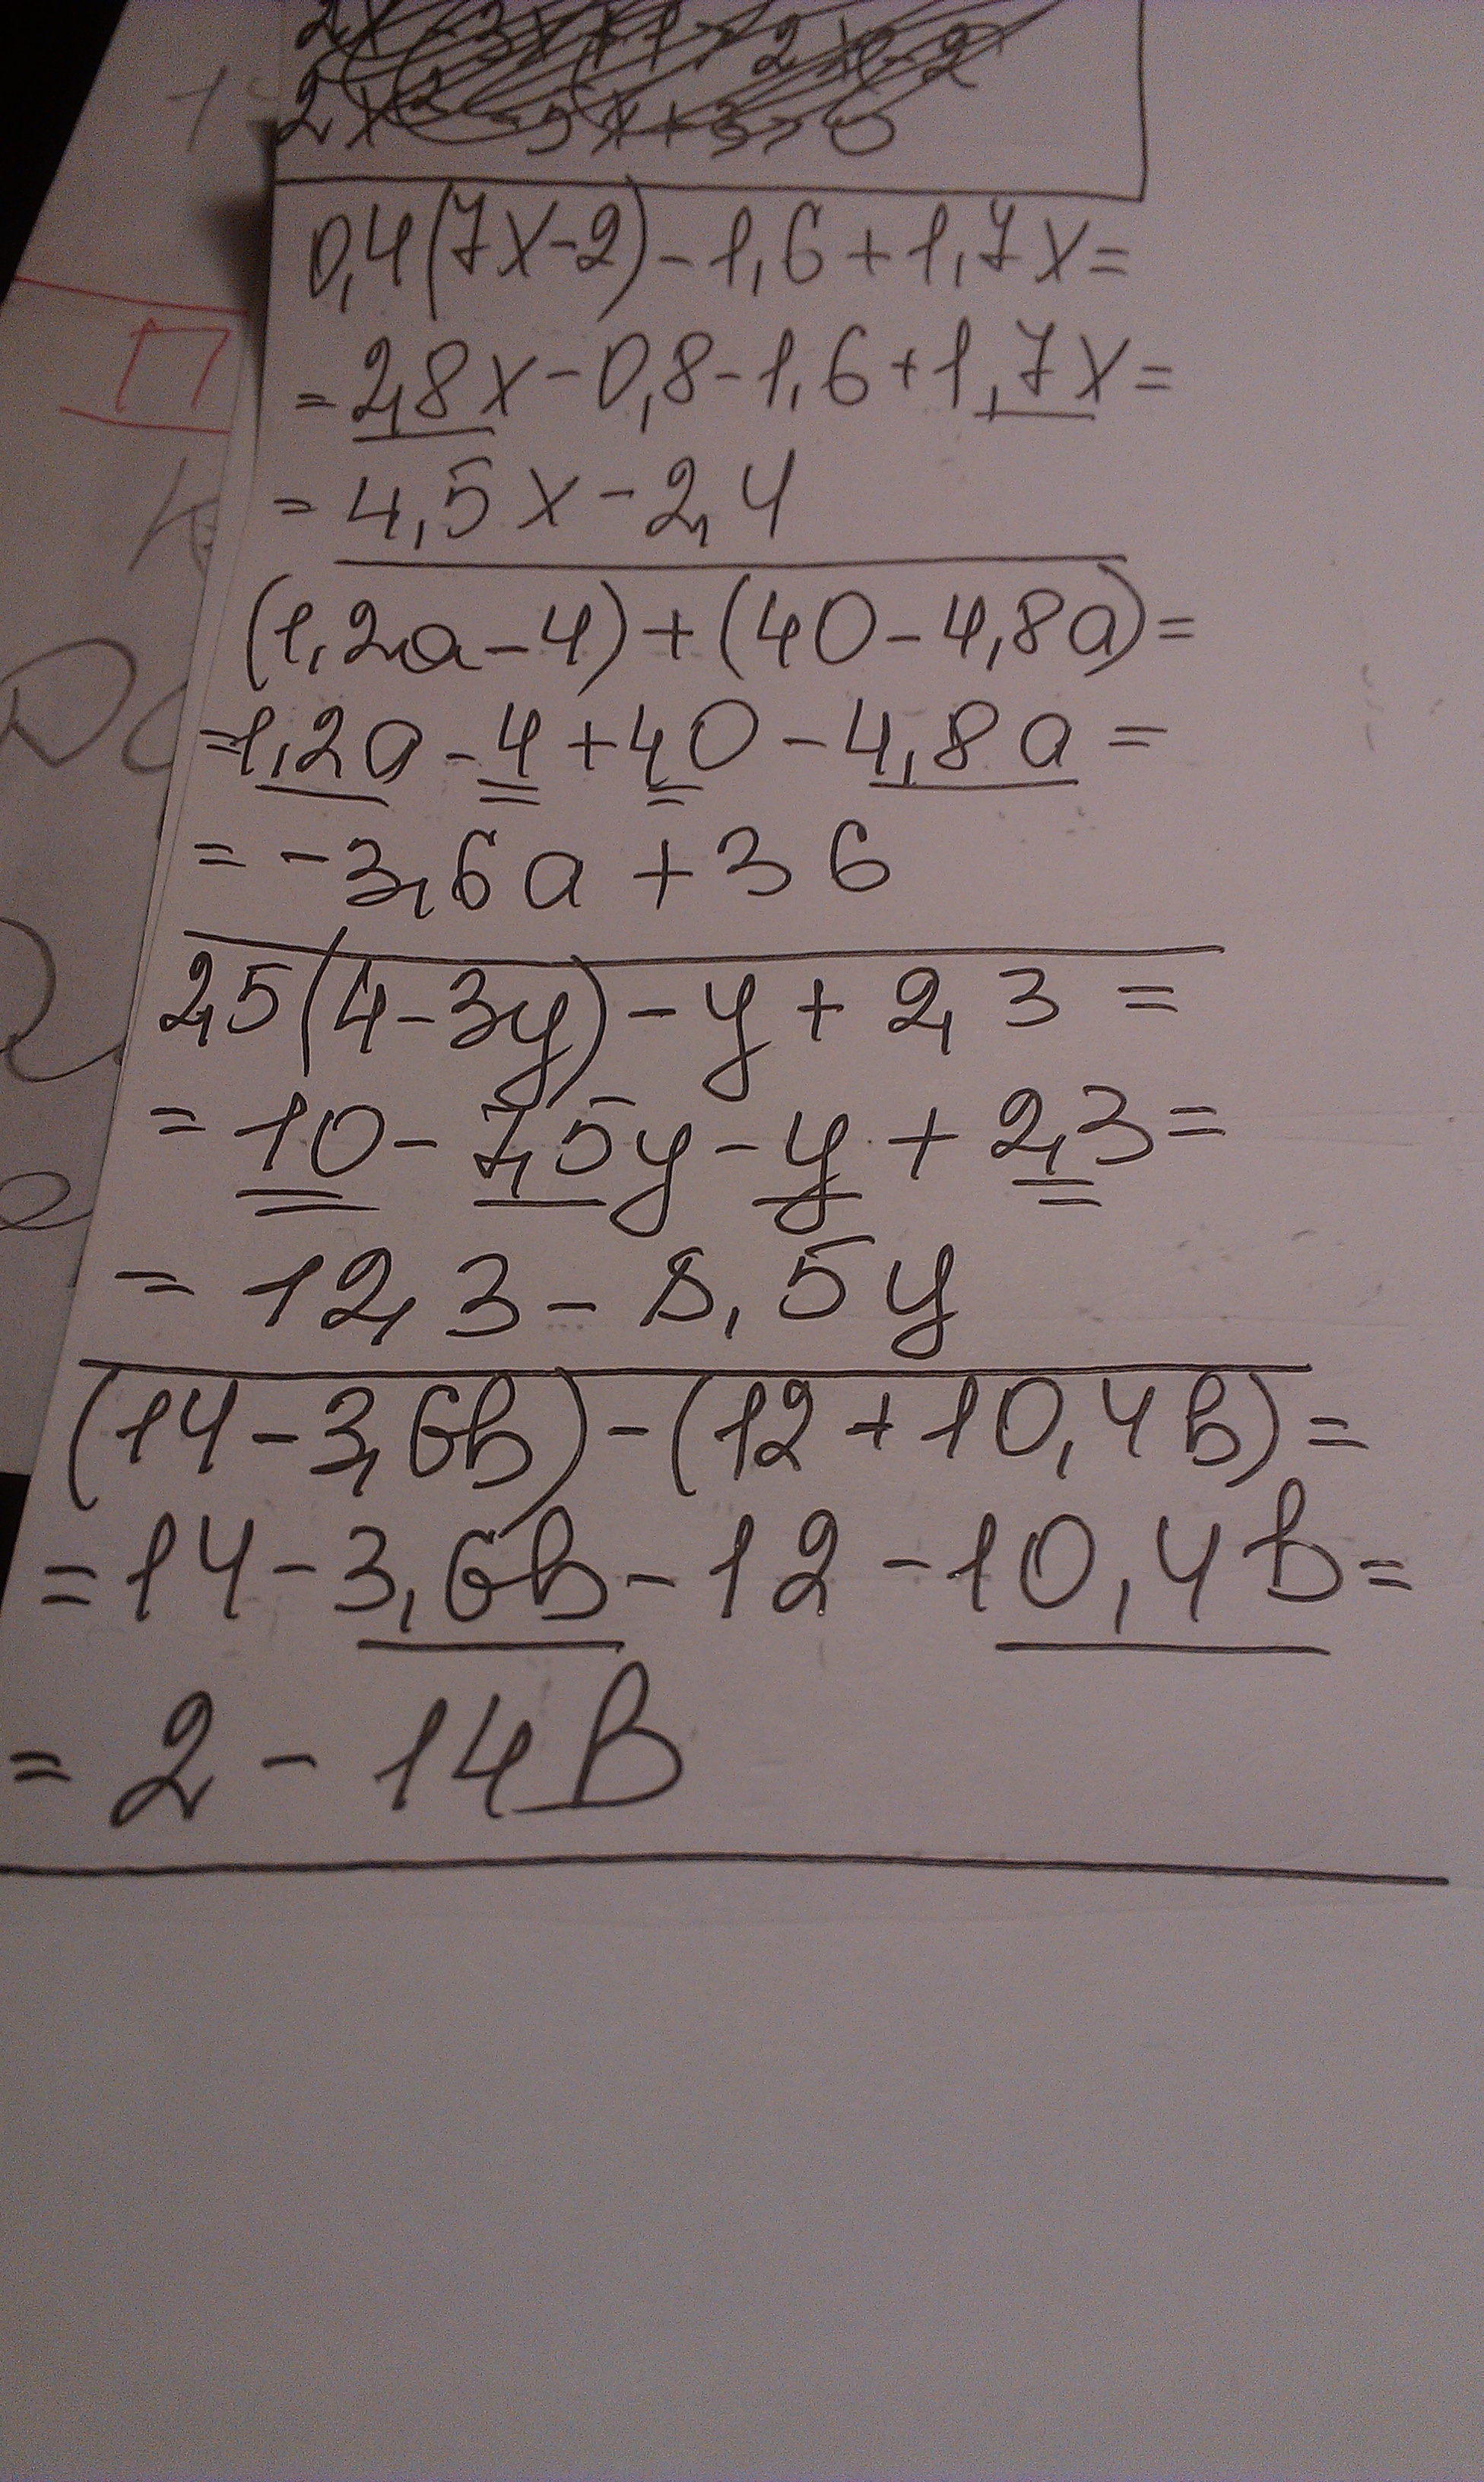 2x²-5x+3>0
0,4(7x-2)-1,6+1,7x=
=2,8x-0,8-1,6+1,7x=
=4,5x-2,4
(1,2a-4)+(40-4,8a)=
=1,2a-4+40-4,8a=
=-3,6a+36
2,5(4-3y)-y+2,3=
=10-7,5y-y+2,3=
=12,3-8,5y
(14-3,6b)-(12+10,4b)=
=14-3,6b-12-10,4b=
=2-14b
П